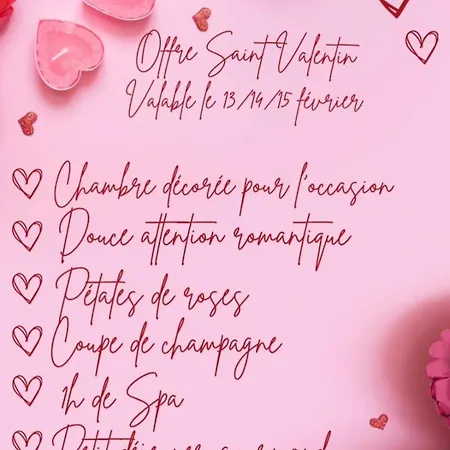 Offre Saint Valentin
Valable le 13/14/15 février
Chambre décorée pour l'occasion
Douce attention romantique
Pétales de roses
Coupe de champagne
1h de Spa
Petit déjeuner gourmand